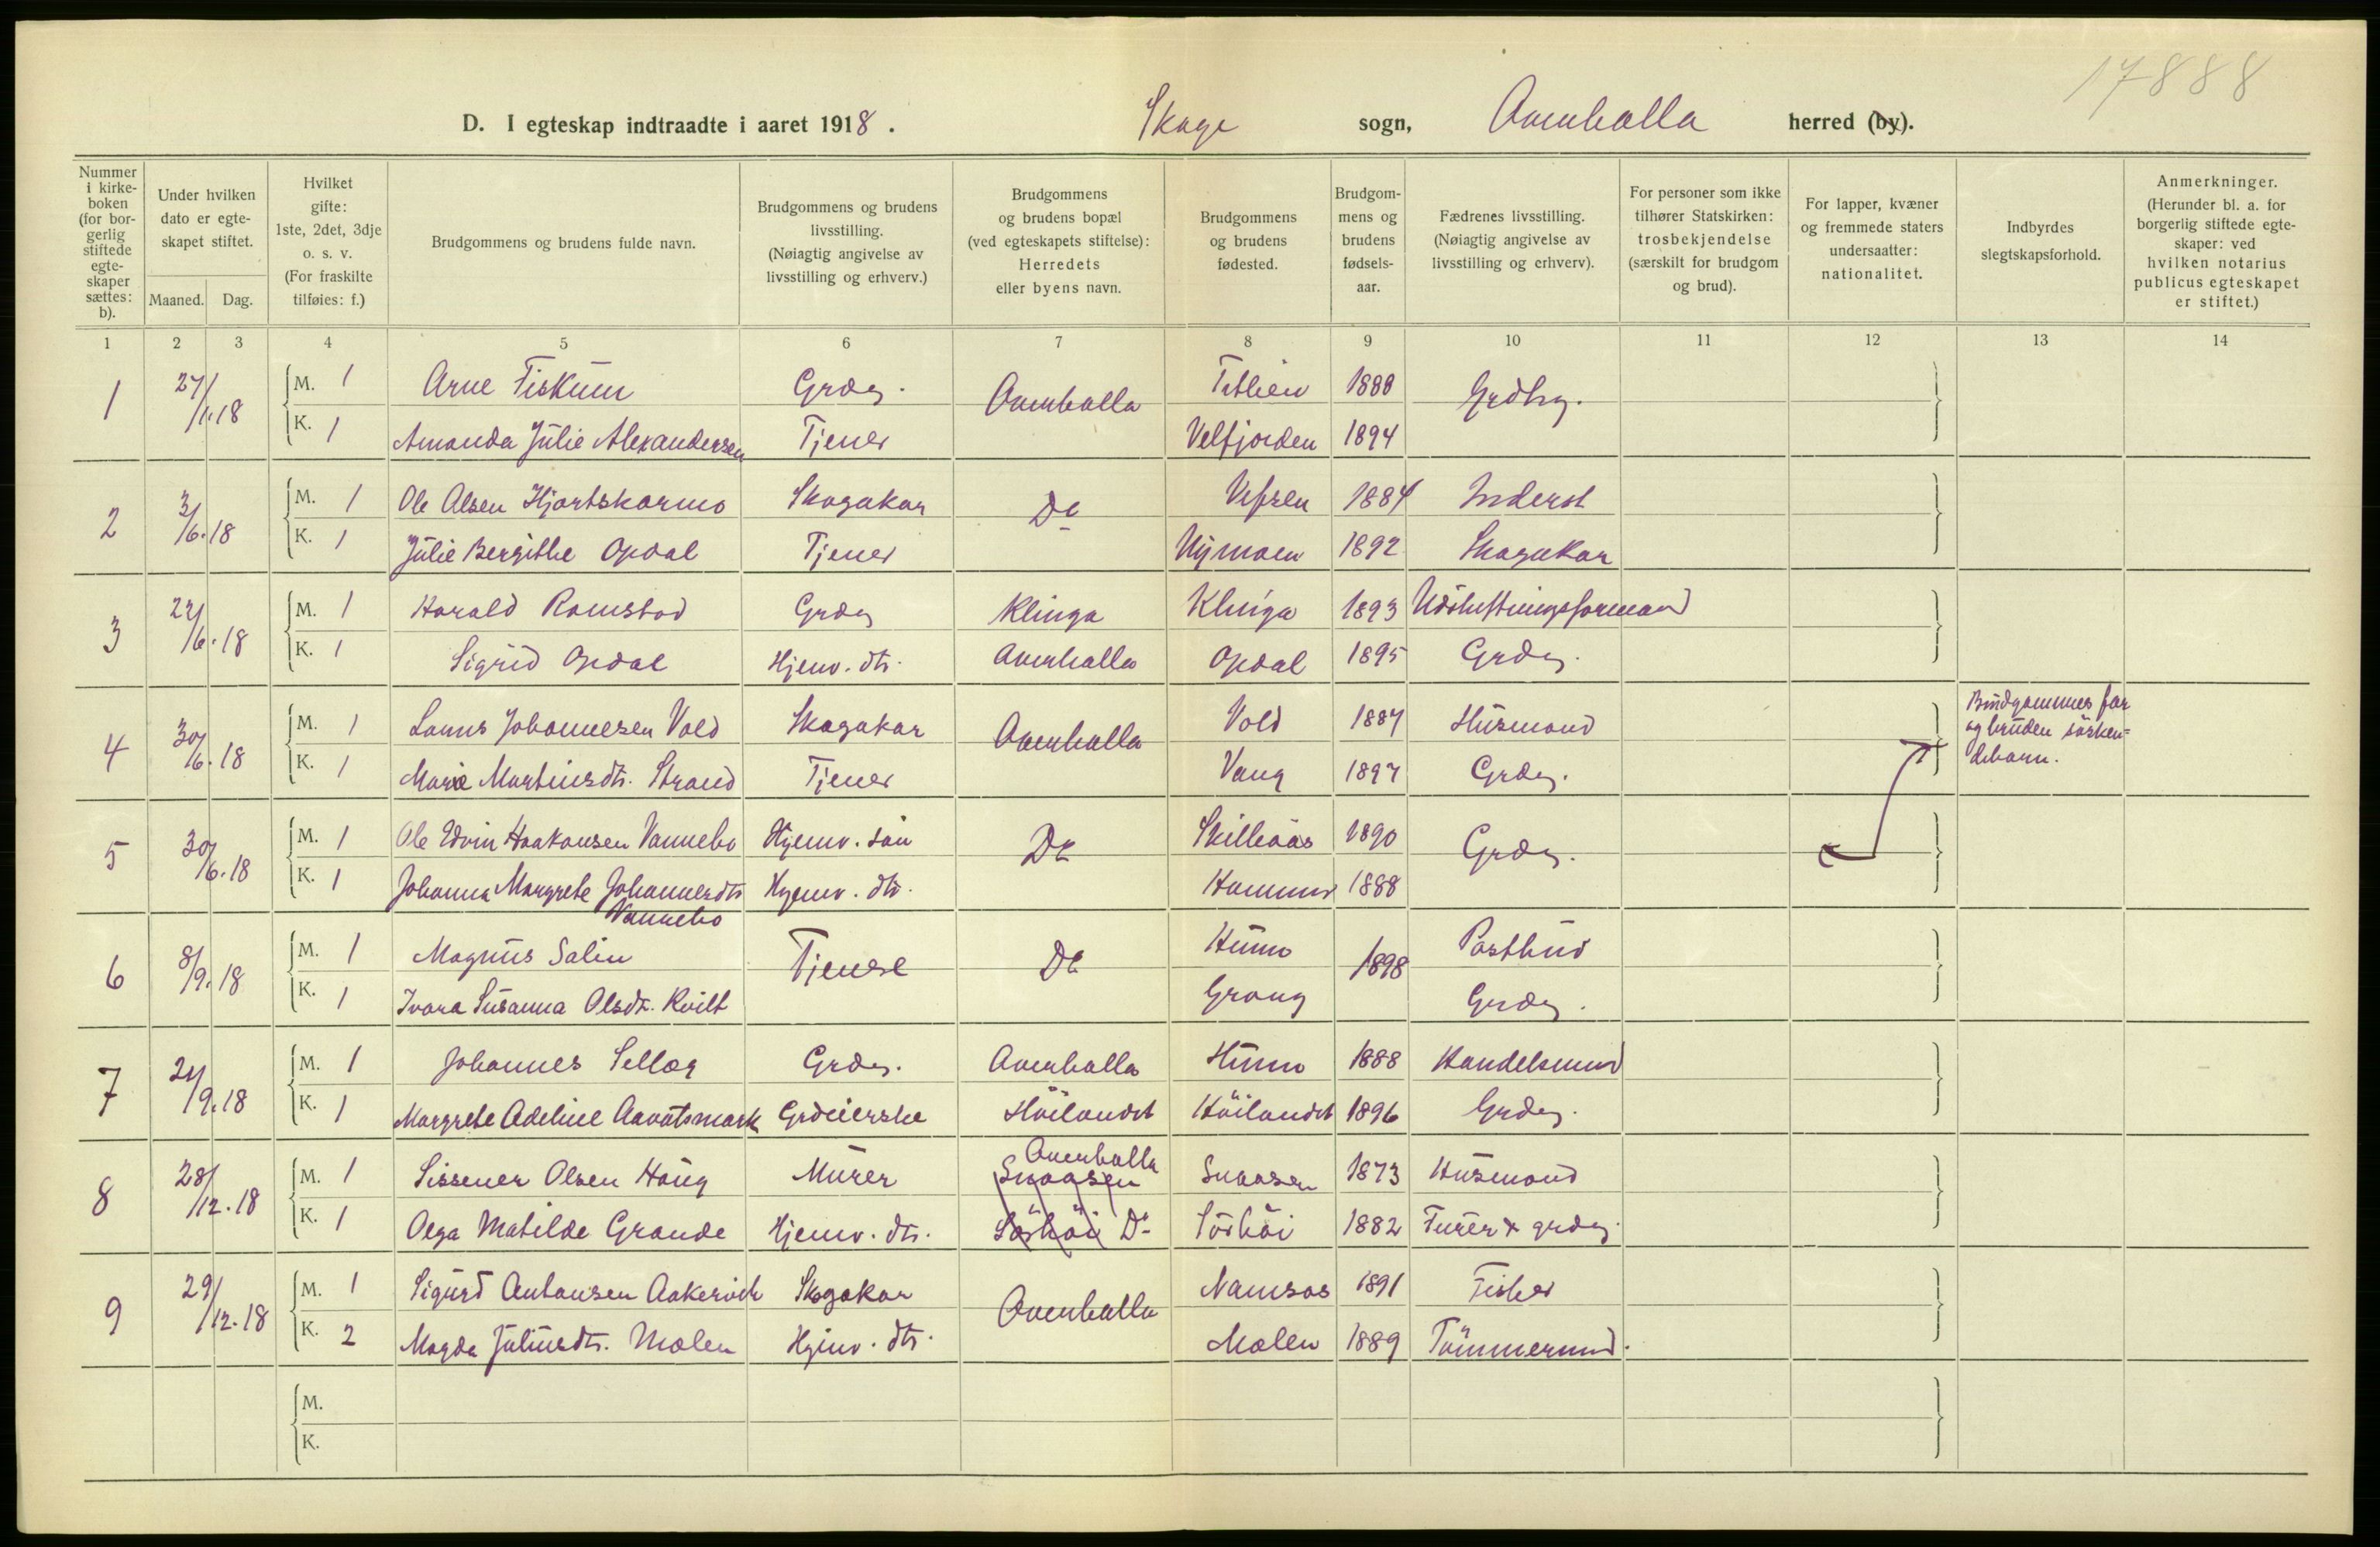 17888
D. I egteskap indtraadte i aaret 1918. Skage sogn, Overhalla herred (by).
Nummer i kirkeboken (for borgerlig stiftede egteskaper sættes: b).
Under hvilken dato er egteskapet stiftet.
Maaned. Dag.
Hvilket gifte: 1ste, 2det, 3dje o. s. v. (For fraskilte tilføies: f.)
Brudgommens og brudens fulde navn.
Brudgommens og brudens livsstilling. (Nøiagtig angivelse av livsstilling og erhverv.)
Brudgommens og brudens bopæl (ved egteskapets stiftelse): Herredets eller byens navn.
Brudgommens og brudens fødested.
Brudgommens og brudens fødselsaar.
Fædrenes livsstilling. (Nøiagtig angivelse av livsstilling og erhverv).
For personer som ikke tilhører Statskirken: trosbekjendelse (særskilt for brudgom og brud).
For lapper, kvæner og fremmede staters undersaatter: nationalitet.
Indbyrdes slegtskapsforhold.
Anmerkninger. (Herunder bl. a. for borgerlig stiftede egteskaper: ved hvilken notarius publicus egteskapet er stiftet.)
1 2 3 4 5 6 7 8 9 10 11 12 13 14
1 27/1.18 M. 1 Arne Fiskum Grdeg. Overhalla 1888 Grdbrg.
K. 1 Amanda Julie Alexandersen Tjener Velfjorden 1894
2 3/6.18 M. 1 Ole Olsen Hjortskarmo Skogskar Do Vefsen 1884 Inderst
K. 1 Julie Bergithe Opdal Tjener Nymoen 1892 Skogskar
3 22/6.18 M. 1 Harald Ramstad Grdeg Klinga Klinga 1893 Udskiftningsformand
K. 1 Sigrid Opdal Hjemv. dtr. Overhalla Opdal 1895 Grdeg.
4 30/6.18 M. 1 Johannesen Vold Skogskar Overhalla Vold 1887 Husmand
K. 1 Marie Martinsdtr. Strand Tjener Vang 1897 Grdeg.
Brudgommens far og bruden söskendebarn.
5 30/6.18 M. 1 Ole Edvin Haakonsen Vannebo Hjemv. sön Do Skilleaas 1890 Grdeg.
K. 1 Johanna Margrete Johannesdtr Vannebo Hjemv. dtr. Hammer 1888
6 8/9.18 M. 1 Magnus Salin Tjenere Do Hunn 1898 Postbud
K. 1 Ivara Susanna Olsdtr. Kvilt Grong Grdeg.
7 21/9.18 M. 1 Johannes Sellæg Grdeg. Overhalla Hunn 1888 Handelsmand
K. 1 Margrete Adeline Aavatsmark Grdeierske Höilandet Höilandet 1896 Grdeg.
8 28/12.18 M. 1 Sissener Olsen Haug Murer Snaasen Overhalla Snaasen 1873 Husmand
K. 1 Olga Matilde Grande Hjemv. dtr. Sörhöi Do Sörhöi 1882 Furer & grdeg.
9 29/12.18 M. 1 Sigurd Antonsen Aakervik Skogskar Overhalla Namsos 1891 Fisker
K. 2 Magda Juliusdtr. Mælen Hjemv. dtr. Mælen 1889 Tömmermd.
M.
K.